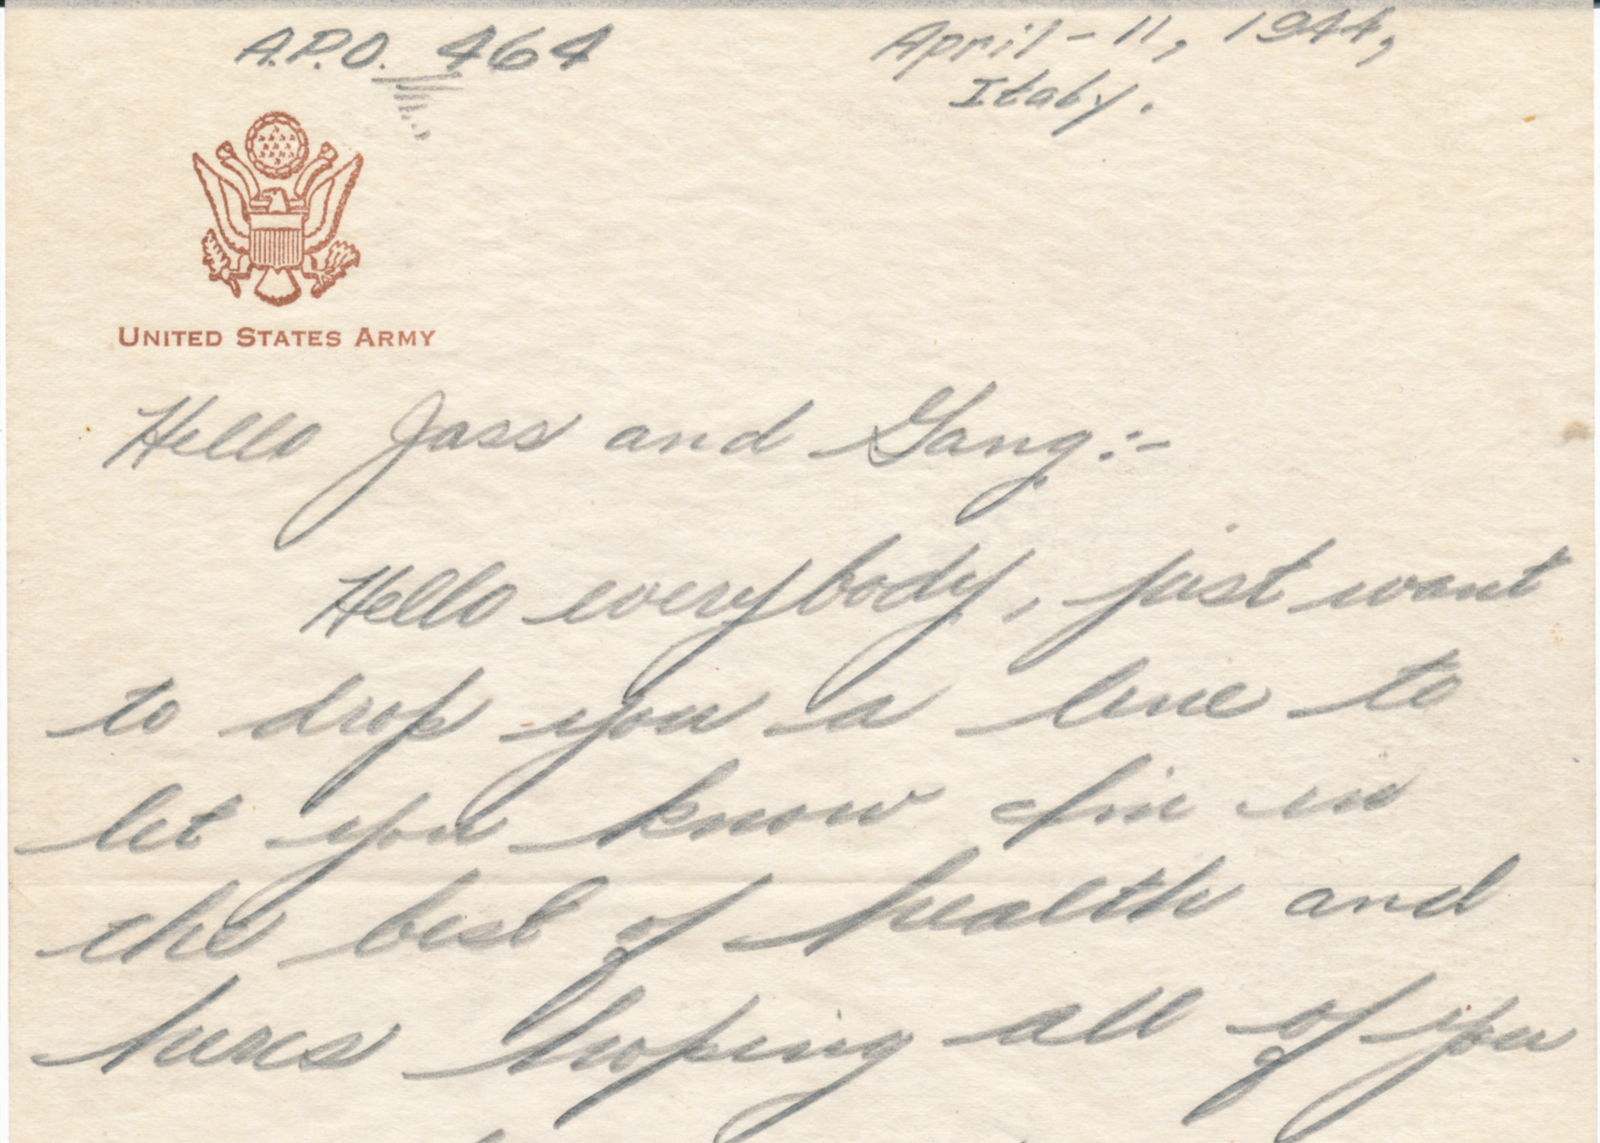 A.P.O. 464
April - 11, 1944,
Italy.
UNITED STATES ARMY
Hello Jass and Gang:-
Hello everybody, just want
to drop you a line to
let you know I'm in
the best of health and
heres hoping all of you